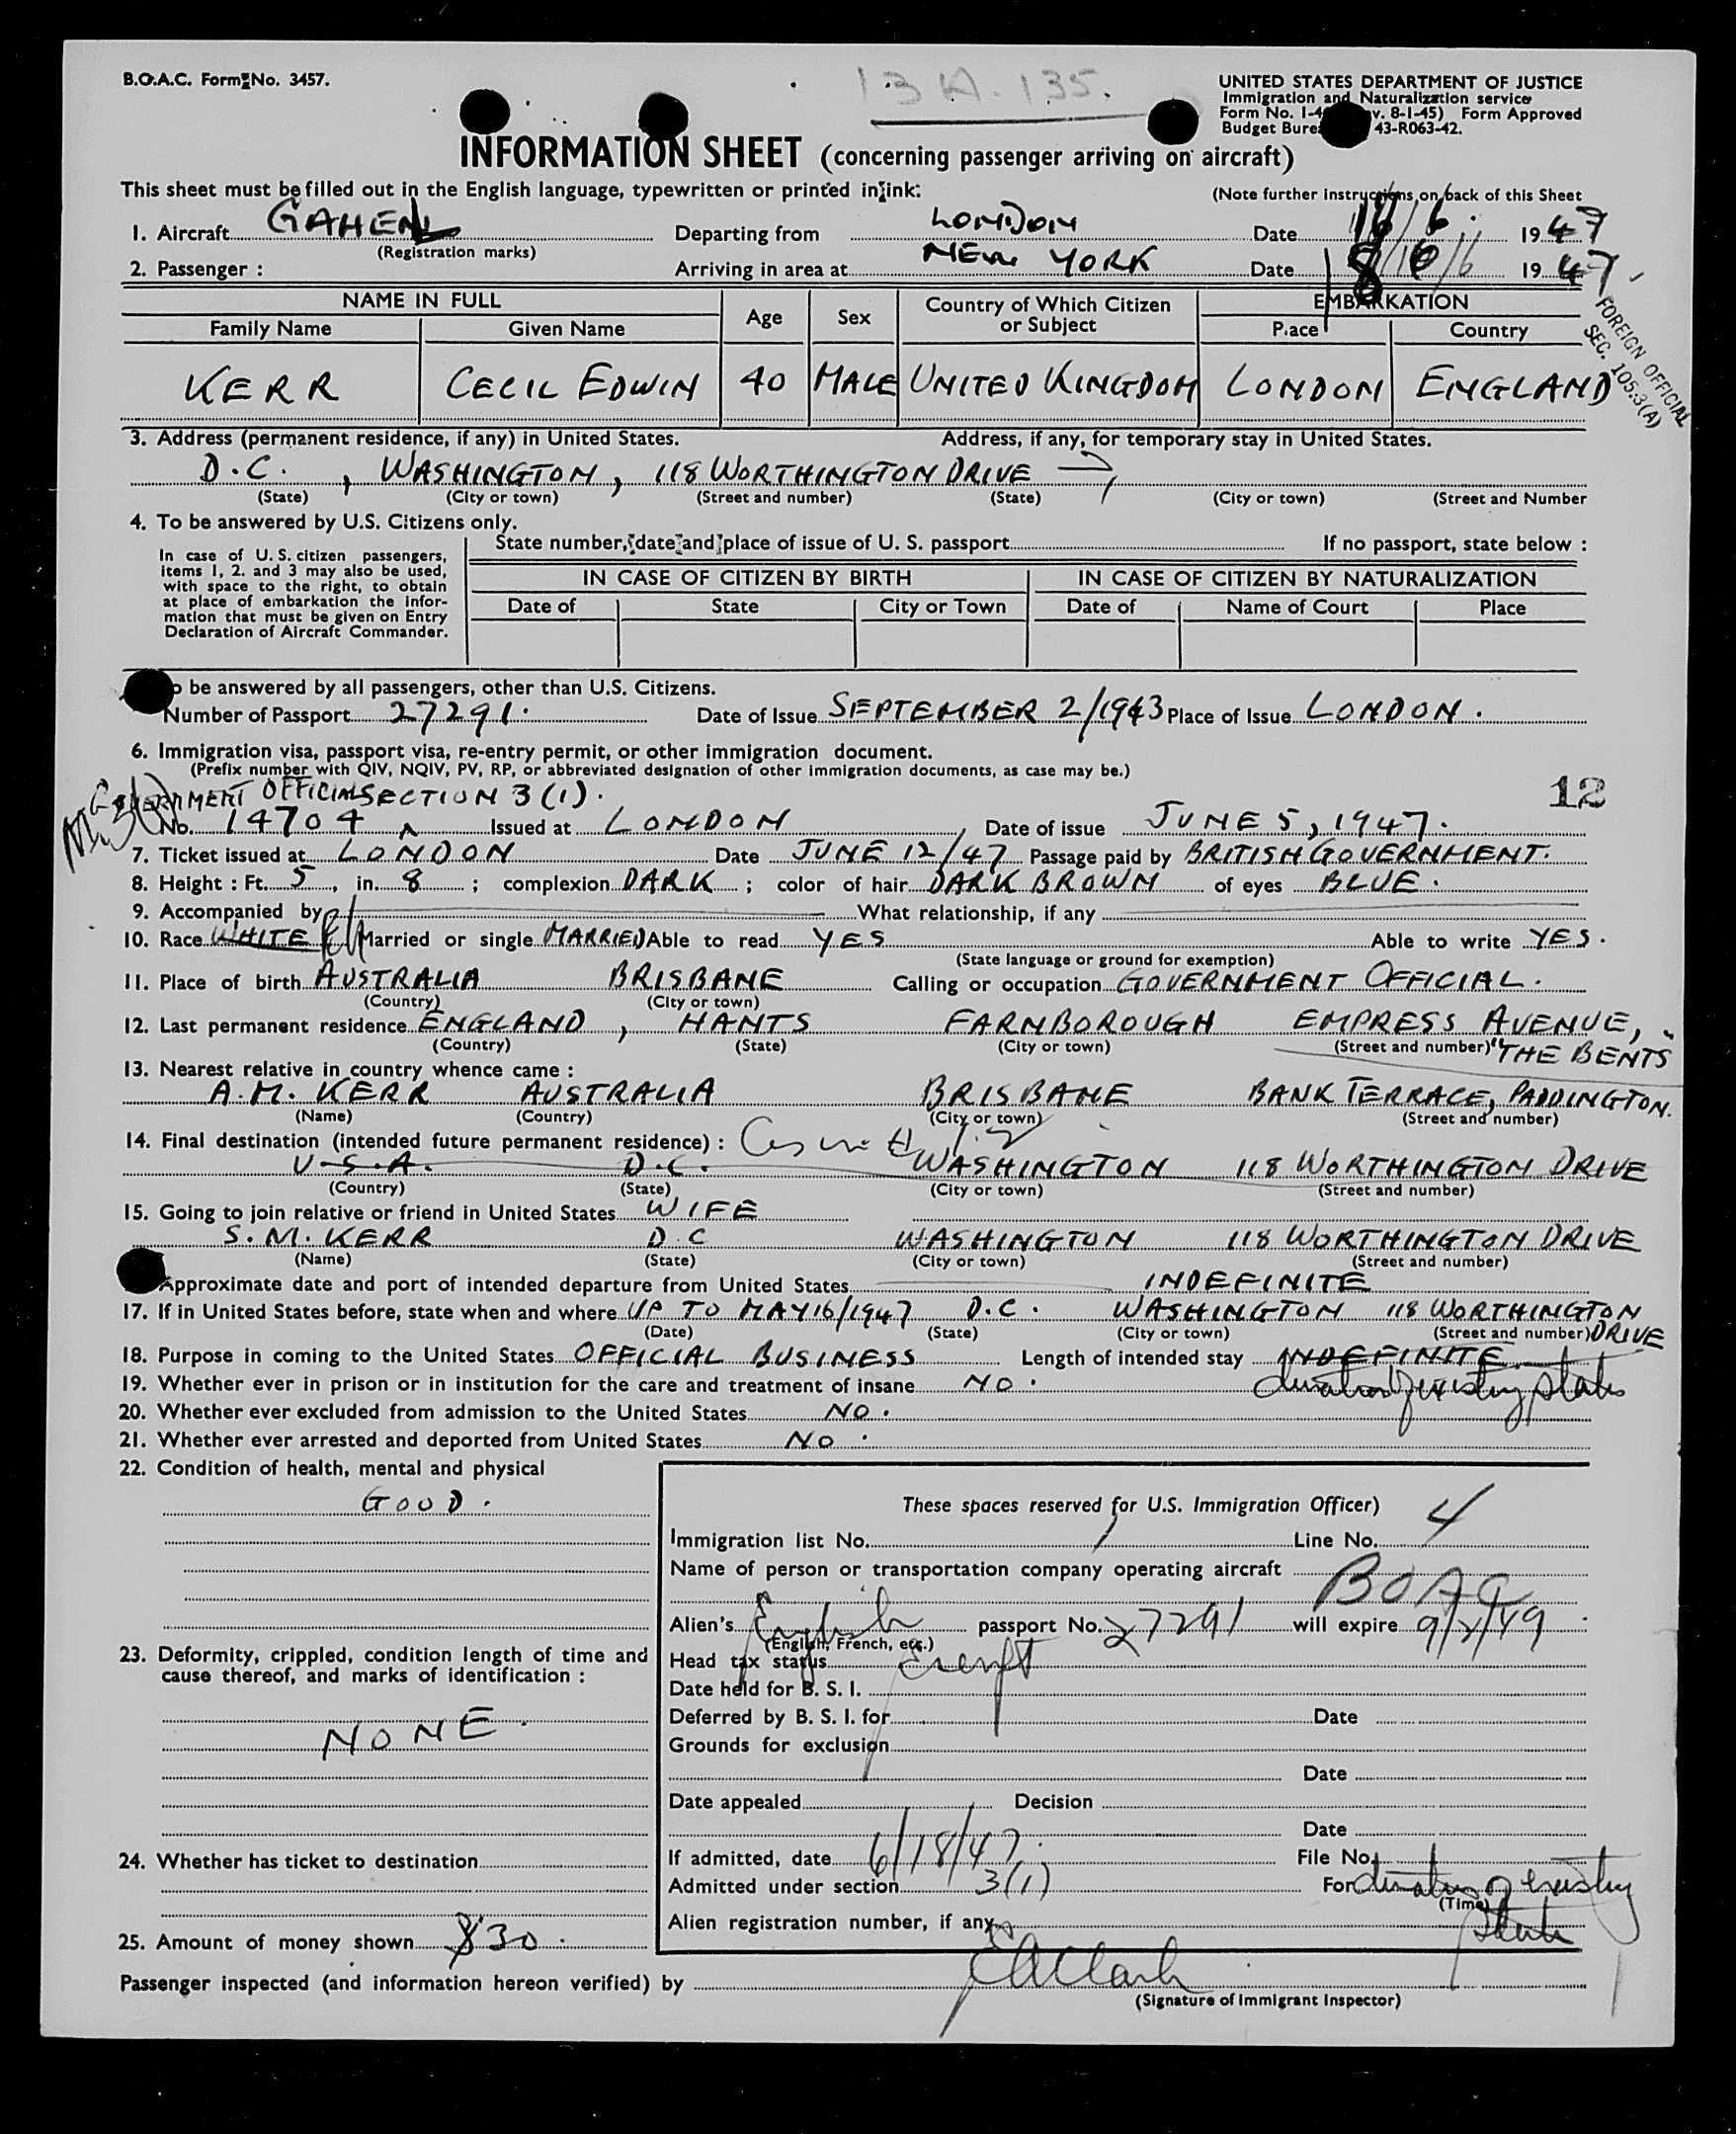 B.O.A.C. Form No. 3457.
13A.135.
UNITED STATES DEPARTMENT OF JUSTICE
Immigration and Naturalization service
Form No. I-4 v. 8-1-45) Form Approved
Budget Bure 43-R063-42.
INFORMATION SHEET (concerning passenger arriving on aircraft)
This sheet must be filled out in the English language, typewritten or printed in ink:
(Note further instructions on back of this Sheet
1. Aircraft GAHEN Departing from LONDON Date 16/6 1947
(Registration marks)
2. Passenger : Arriving in area at NEW YORK Date 18/6 1947
FOREIGN OFFICIAL
SEC. 105.3(A)
NAME IN FULL Age Sex Country of Which Citizen or Subject EMBARKATION
Family Name Given Name Place Country
KERR CECIL EDWIN 40 MALE UNITED KINGDOM LONDON ENGLAND
3. Address (permanent residence, if any) in United States. Address, if any, for temporary stay in United States.
D.C. , WASHINGTON , 118 WORTHINGTON DRIVE
(State) (City or town) (Street and number) (State) (City or town) (Street and Number
4. To be answered by U.S. Citizens only.
In case of U. S. citizen passengers,
items 1, 2. and 3 may also be used,
with space to the right, to obtain
at place of embarkation the infor-
mation that must be given on Entry
Declaration of Aircraft Commander.
State number, date and place of issue of U. S. passport If no passport, state below :
IN CASE OF CITIZEN BY BIRTH IN CASE OF CITIZEN BY NATURALIZATION
Date of State City or Town Date of Name of Court Place
o be answered by all passengers, other than U.S. Citizens.
Number of Passport 27291. Date of Issue SEPTEMBER 2/1943 Place of Issue LONDON.
6. Immigration visa, passport visa, re-entry permit, or other immigration document.
(Prefix number with QIV, NQIV, PV, RP, or abbreviated designation of other immigration documents, as case may be.)
GOVERNMENT OFFICIAL SECTION 3 (1).
12
No. 14704 Issued at LONDON Date of issue JUNE 5, 1947.
7. Ticket issued at LONDON Date JUNE 12/47 Passage paid by BRITISH GOVERNMENT.
8. Height : Ft. 5, in. 8 ; complexion DARK ; color of hair DARK BROWN of eyes BLUE.
9. Accompanied by What relationship, if any
10. Race WHITE Married or single MARRIED Able to read YES Able to write YES.
(State language or ground for exemption)
11. Place of birth AUSTRALIA BRISBANE Calling or occupation GOVERNMENT OFFICIAL.
(Country) (City or town)
12. Last permanent residence ENGLAND , HANTS FARNBOROUGH EMPRESS AVENUE,
(Country) (State) (City or town) (Street and number) "THE BENTS
13. Nearest relative in country whence came :
A.M. KERR AUSTRALIA BRISBANE BANK TERRACE, PADDINGTON.
(Name) (Country) (City or town) (Street and number)
14. Final destination (intended future permanent residence) :
U.S.A. D.C. WASHINGTON 118 WORTHINGTON DRIVE
(Country) (State) (City or town) (Street and number)
15. Going to join relative or friend in United States WIFE
S. M. KERR D.C WASHINGTON 118 WORTHINGTON DRIVE
(Name) (State) (City or town) (Street and number)
Approximate date and port of intended departure from United States INDEFINITE
17. If in United States before, state when and where UP TO MAY 16/1947 D.C. WASHINGTON 118 WORTHINGTON
(Date) (State) (City or town) (Street and number) DRIVE
18. Purpose in coming to the United States OFFICIAL BUSINESS Length of intended stay INDEFINITE
19. Whether ever in prison or in institution for the care and treatment of insane NO. duration of existing status
20. Whether ever excluded from admission to the United States NO.
21. Whether ever arrested and deported from United States NO.
22. Condition of health, mental and physical
GOOD.
23. Deformity, crippled, condition length of time and
cause thereof, and marks of identification :
NONE.
24. Whether has ticket to destination
25. Amount of money shown $30.
These spaces reserved for U.S. Immigration Officer)
Immigration list No. 1 Line No. 4
Name of person or transportation company operating aircraft
BOAC
Alien's English passport No. 27291 will expire 9/2/49
(English, French, etc.)
Head tax status Exempt
Date held for B. S. I.
Deferred by B. S. I. for Date
Grounds for exclusion
Date
Date appealed Decision
Date
If admitted, date 6/18/47. File No.
Admitted under section 3(1) For duration of existing
(Time)
Alien registration number, if any status
Passenger inspected (and information hereon verified) by
(Signature of Immigrant Inspector)